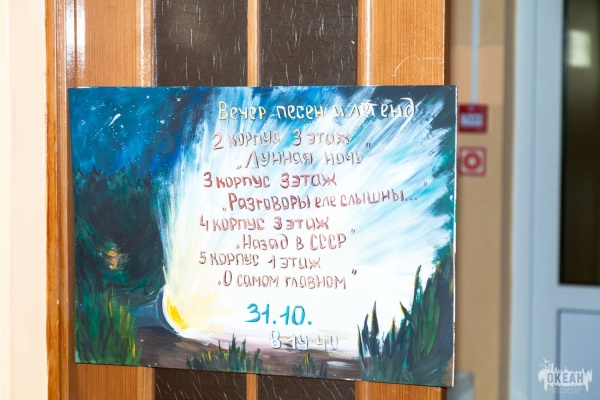 Вечер песен и легенд
2 корпус 3 этаж
„Лунная ночь"
3 корпус 3 этаж
„Разговоры еле слышны..."
4 корпус 3 этаж
„Назад в СССР"
5 корпус 1 этаж
„О самом главном"
31.10.
ОКЕАН